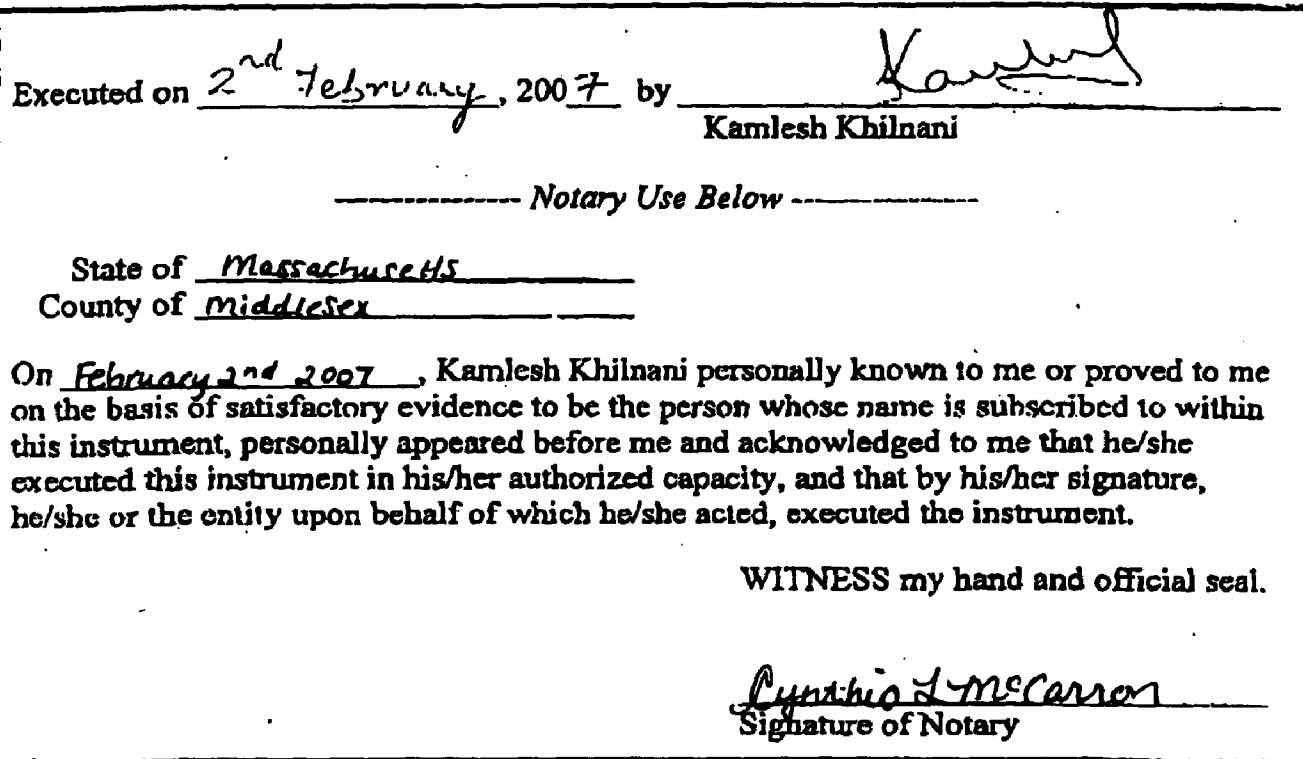 Executed on 2nd February, 2007 by
Kamlesh Khilnani
-------------- Notary Use Below --------------
State of Massachusetts
County of Middlesex
On February 2nd 2007, Kamlesh Khilnani personally known to me or proved to me
on the basis of satisfactory evidence to be the person whose name is subscribed to within
this instrument, personally appeared before me and acknowledged to me that he/she
executed this instrument in his/her authorized capacity, and that by his/her signature,
he/she or the entity upon behalf of which he/she acted, executed the instrument.
WITNESS my hand and official seal.
Cynthia L McCarron
Signature of Notary